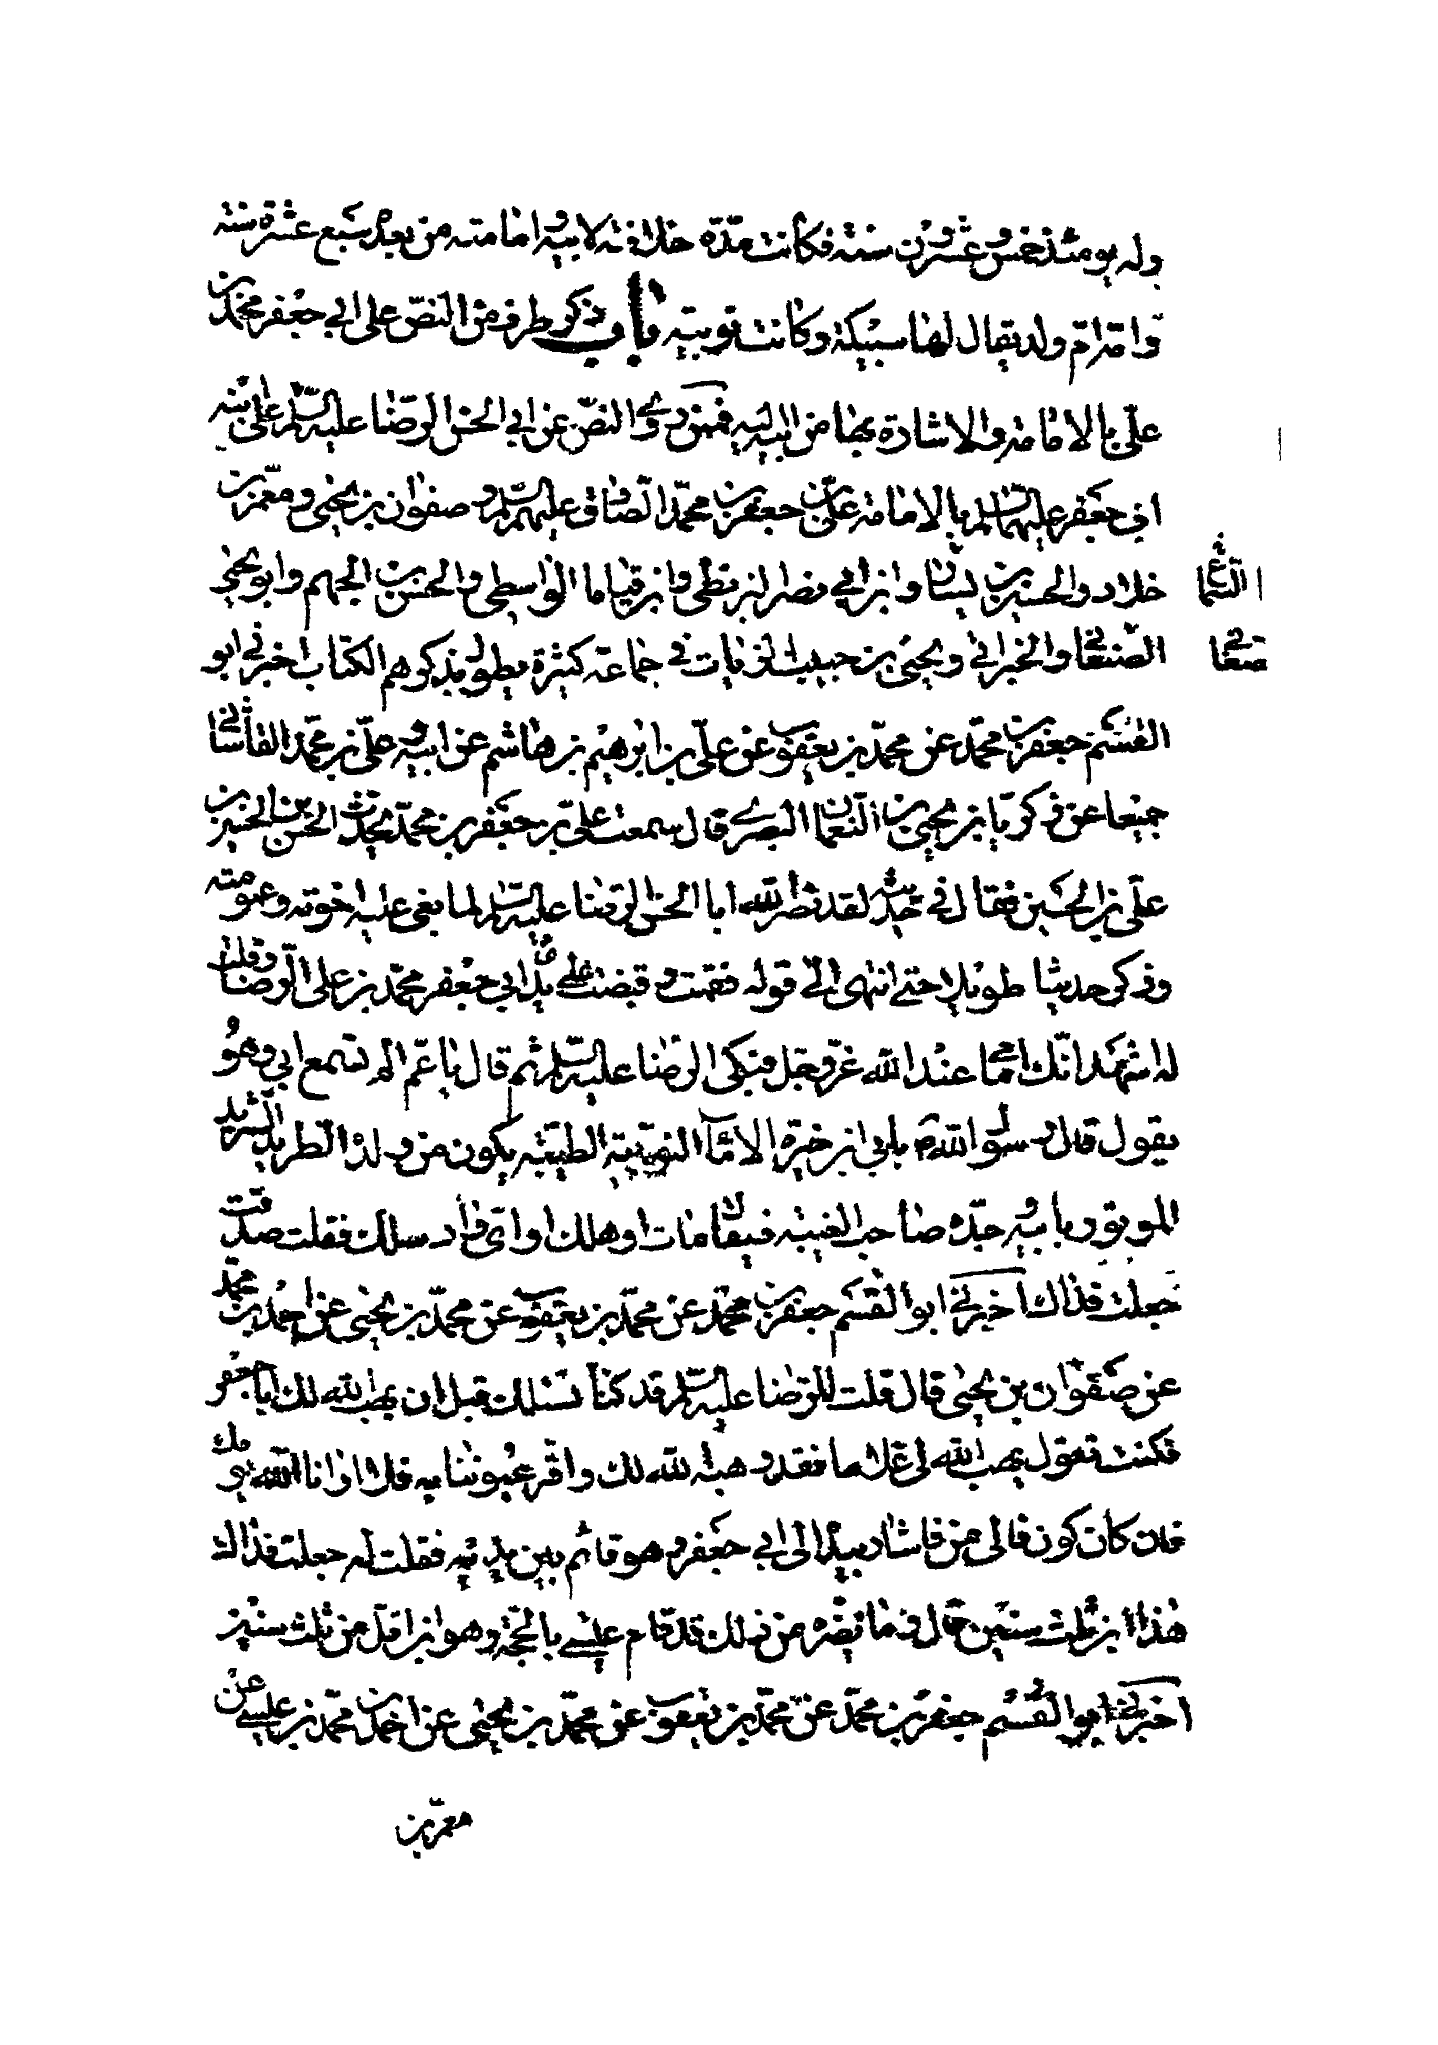 وله يومئذ خمس وعشرون سنة فكانت مدّة خلافته لابيه وامامته من بعده سبع عشرة سنة
وامّه امّ ولد يقال لها سبيكة وكانت نوبيّة باب ذكر طرف من النصّ على ابي جعفر محمّد بن
علىّ بالامامة والاشارة بها من ابيه اليه فممّن روى النصّ عن ابي الحسن الرّضا عليه السّلم على ابنه
ابي جعفر عليهما السّلم بالامامة علىّ بن جعفر بن محمّد الصّادق عليهم السّلم وصفوان بن يحيى ومعمّر بن
خلاد والحسين بن بشار وابن ابي نصر البزنطى وابن قياما الواسطى والحسن بن الجهم وابو يحيى
الصّنعانى والخيرانى ويحيى بن حبيب الزيات في جماعة كثيرة يطول بذكرهم الكتاب اخبرنى ابو
القسم جعفر بن محمّد عن محمّد بن يعقوب عن علىّ بن ابرهيم بن هاشم عن ابيه وعلىّ بن محمّد القاشانى
جميعا عن زكريّا بن يحيى بن النّعمان البصرى قال سمعت علىّ بن جعفر بن محمّد يحدّث الحسن بن الحسين بن
علىّ بن الحسين فقال في حديثه لقد نصر الله ابا الحسن الرّضا عليه السّلم لما بغى عليه اخوته وعمومته
وذكر حديثا طويلا حتى انتهى الى قوله فقمت وقبضت على يد ابي جعفر محمّد بن على الرّضا وقلت
له اشهد انّك امامى عند الله عزّ وجل فبكى الرّضا عليه السّلم ثم قال يا عمّ الم تسمع ابي وهو
يقول قال رسول الله ص بابي ابن خيرة الاماء النوبيّة الطيّبة يكون من ولده الطريد الشريد
الموتور بابيه وجدّه صاحب الغيبة فيقال مات او هلك او اىّ واد سلك فقلت صدقت
جعلت فداك اخبرنى ابو القسم جعفر بن محمّد عن محمّد بن يعقوب عن محمّد بن يحيى عن احمد بن محمّد
عن صفوان بن يحيى قال قلت للرّضا عليه السّلم قد كنّا نسئلك قبل ان يهب الله لك ابا جعفر
فكنت تقول يهب الله لى غلاما فقد وهبه الله لك واقرّ عيوننا به فلا ارانا الله يومك
فان كان كون فالى من فاشار بيده الى ابي جعفر وهو قائم بين يديه فقلت له جعلت فداك
هذا ابن ثلث سنين قال وما يضرّه من ذلك قد قام عيسى بالحجّة وهو ابن اقل من ثلث سنين
اخبرنى ابو القسم جعفر بن محمّد عن محمّد بن يعقوب عن محمّد بن يحيى عن احمد بن محمّد بن عيسى عن
معمّر بن